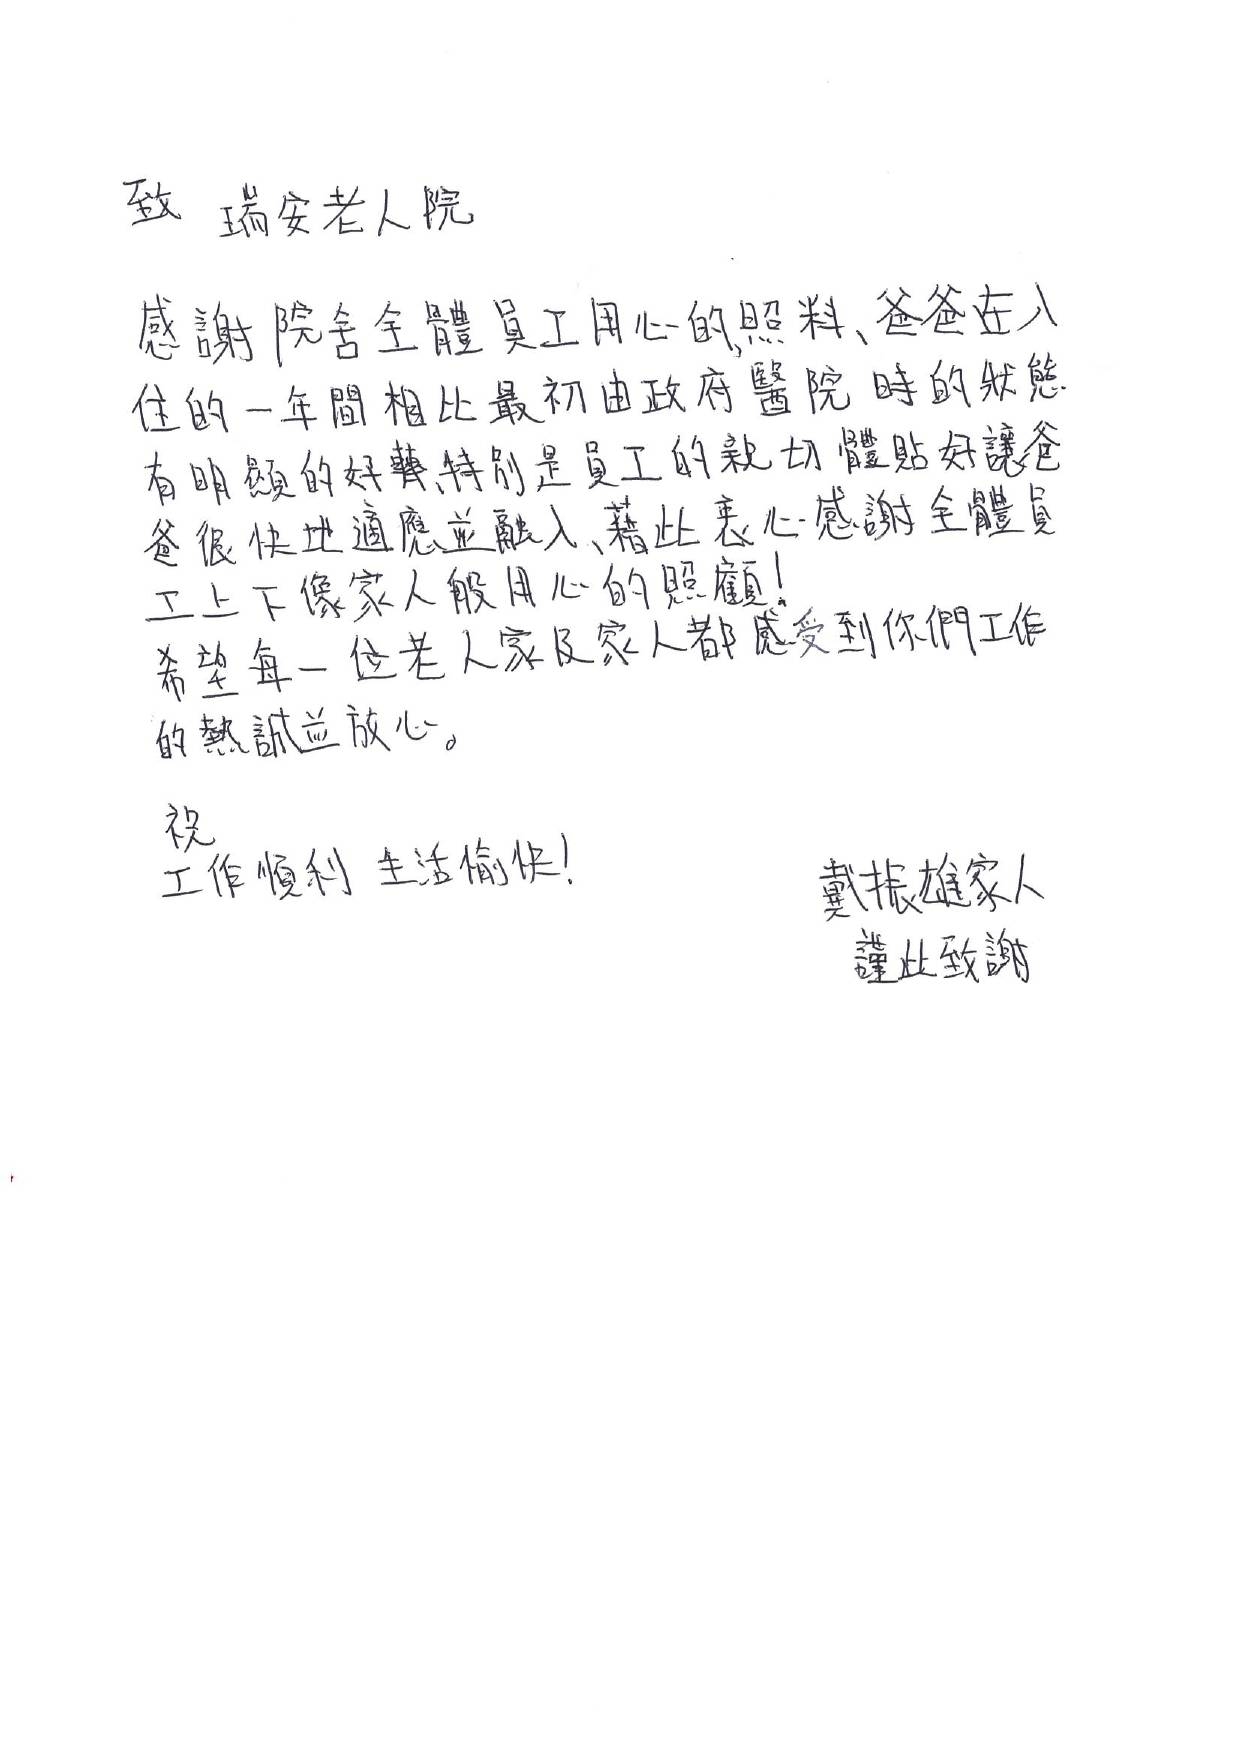 致 瑞安老人院
感謝院舍全體員工用心的照料、爸爸在入
住的一年間相比最初由政府醫院時的狀態
有明顯的好轉、特別是員工的親切體貼好讓爸
爸很快地適應並融入、藉此衷心感謝全體員
工上下像家人般用心的照顧!
希望每一位老人家及家人都感受到你們工作
的熱誠並放心。
祝
工作順利 生活愉快!
戴振雄家人
謹此致謝